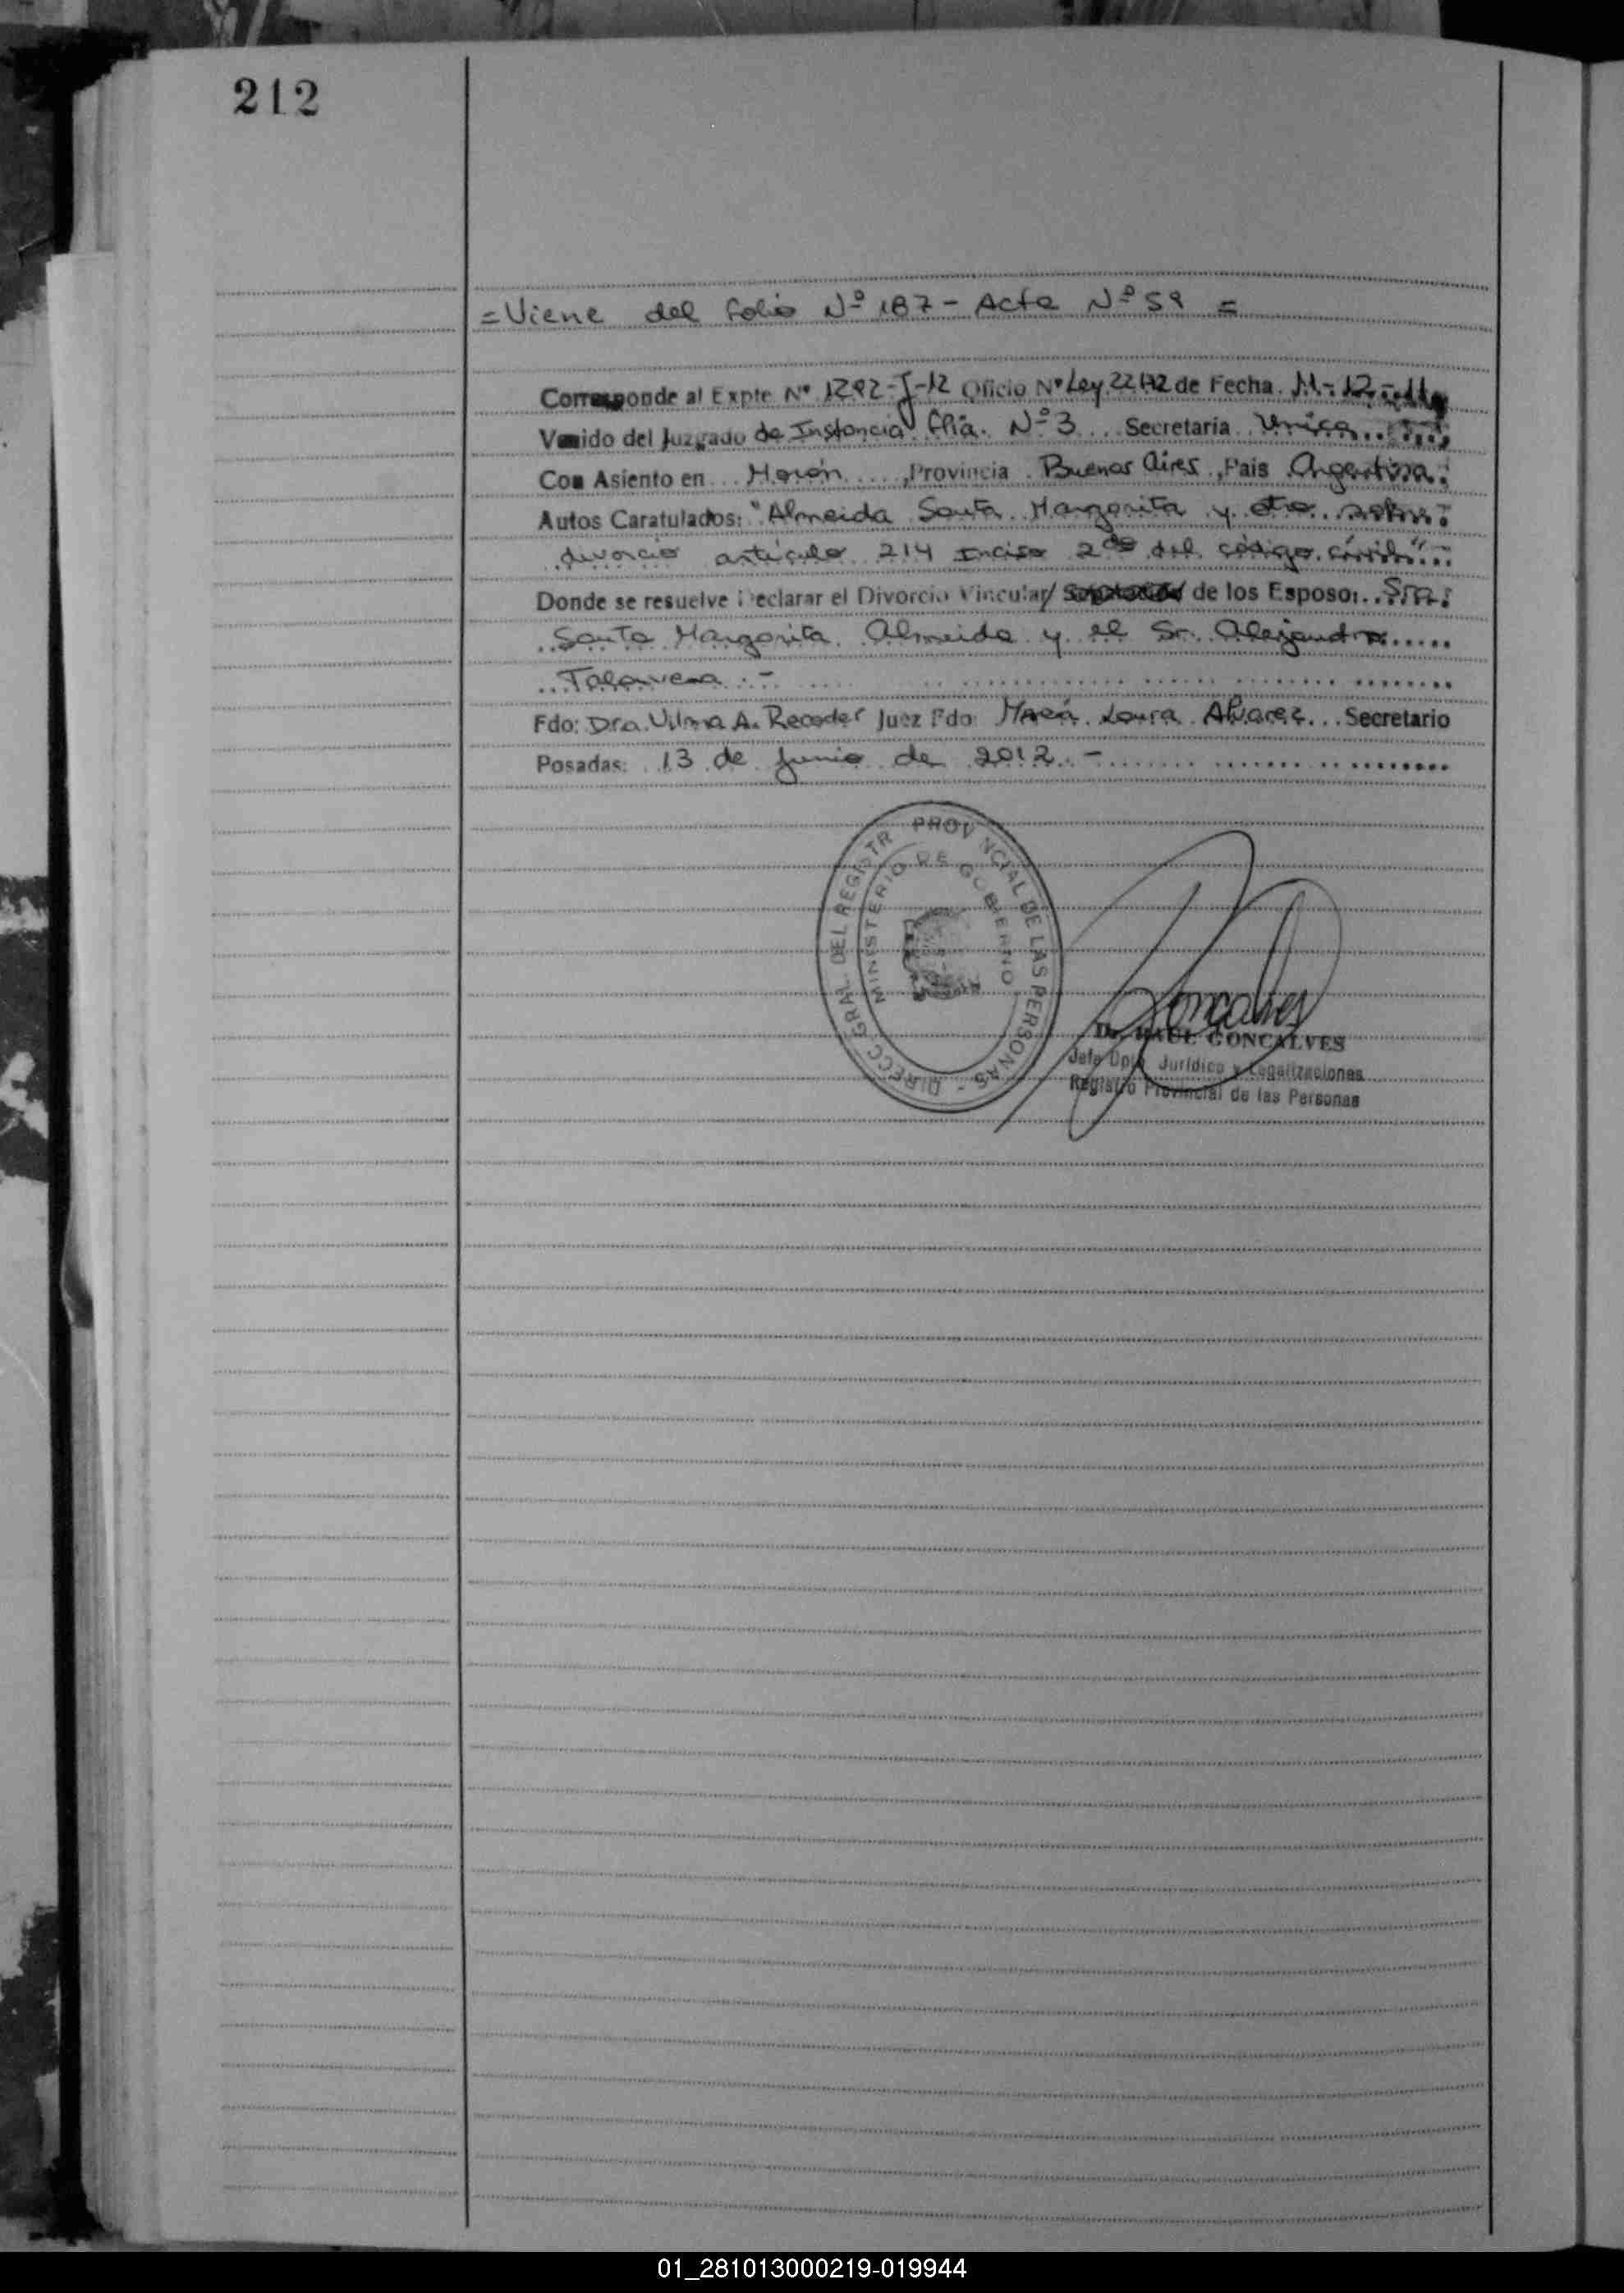 212
= Viene del folio Nº 187 - Acta Nº 59 =
Corresponde al Expte Nº 1292-J-12 Oficio Nº Ley 22172 de Fecha 11-12-
Venido del Juzgado de Instancia flia. Nº 3 ... Secretaría Unica
Con Asiento en ... Morón ...., Provincia . Buenos Aires , Pais Argentina.
Autos Caratulados: "Almeida Santa Margarita y otro sobre
divorcio artículo 214 Inciso 2do del código civil"
Donde se resuelve Declarar el Divorcio Vincular/ de los Esposos: .. Sra.
Santa Margarita Almeida y el Sr. Alejandro
Talavera . -
Fdo: Dra. Vilma A. Recoder Juez Fdo: María Laura Alvarez ... Secretario
Posadas: 13 de Junio de 2012. -
DIRECC. GRAL. DEL REGISTR PROVINCIAL DE LAS PERSONAS -
MINISTERIO DE GOBIERNO
Goncalves
Dr. RAUL GONCALVES
Jefe Dpto. Jurídico y Legalizaciones
Registro Provincial de las Personas
01_281013000219-019944